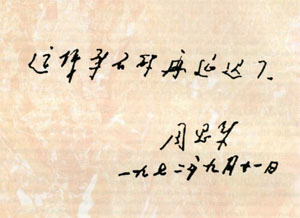 这件事不能再延迟了.
周恩来
一九七二年九月十一日